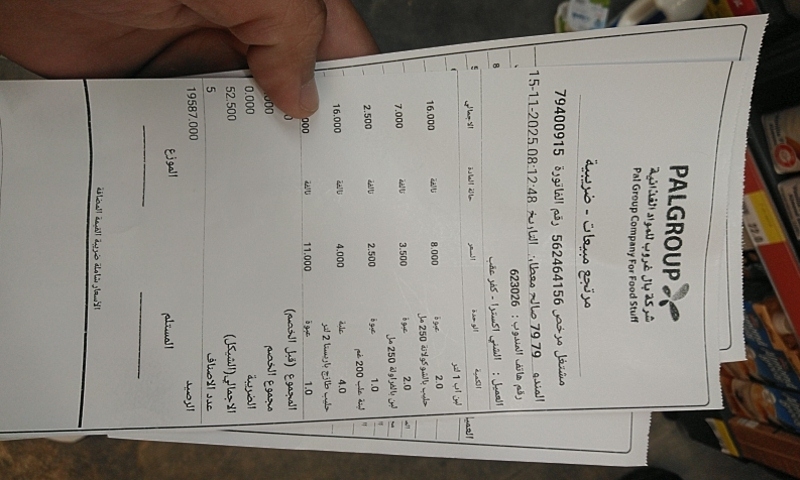 PALGROUP
شركة بال غروب للمواد الغذائية
Pal Group Company For Food Stuff
مرتجع مبيعات - ضريبية
مشتغل مرخص 562464156 رقم الفاتورة 79400915
المندو 79 79 صالح معطا: التاريخ 15-11-2025 08:12:48
رقم هاتف المندوب : 623026
العميل : الشني اكسترا - كفر عقب
الكمية الوحدة السعر حالة المادة الاجمالي
لبن اب 1 لتر
2.0 عبوة 8.000 تالفة 16.000
حليب بالشوكولاتة 250 مل
2.0 عبوة 3.500 تالفة 7.000
لبن بالفراولة 250 مل
1.0 عبوة 2.500 تالفة 2.500
لبنة علب 200 غم
4.0 علبة 4.000 تالفة 16.000
حليب طازج باريستا 2 لتر
1.0 عبوة 11.000 تالفة 000
المجموع (قبل الخصم)
مجموع الخصم 000
الضريبة 0.000
الاجمالي(الشيكل) 52.500
عدد الاصناف 5
الرصيد 19587.000
المستلم الموزع
الاسعار شاملة ضريبة القيمة المضافة